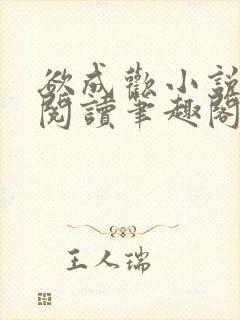 欲成歡小説
閱讀筆趣閣
王人瑞